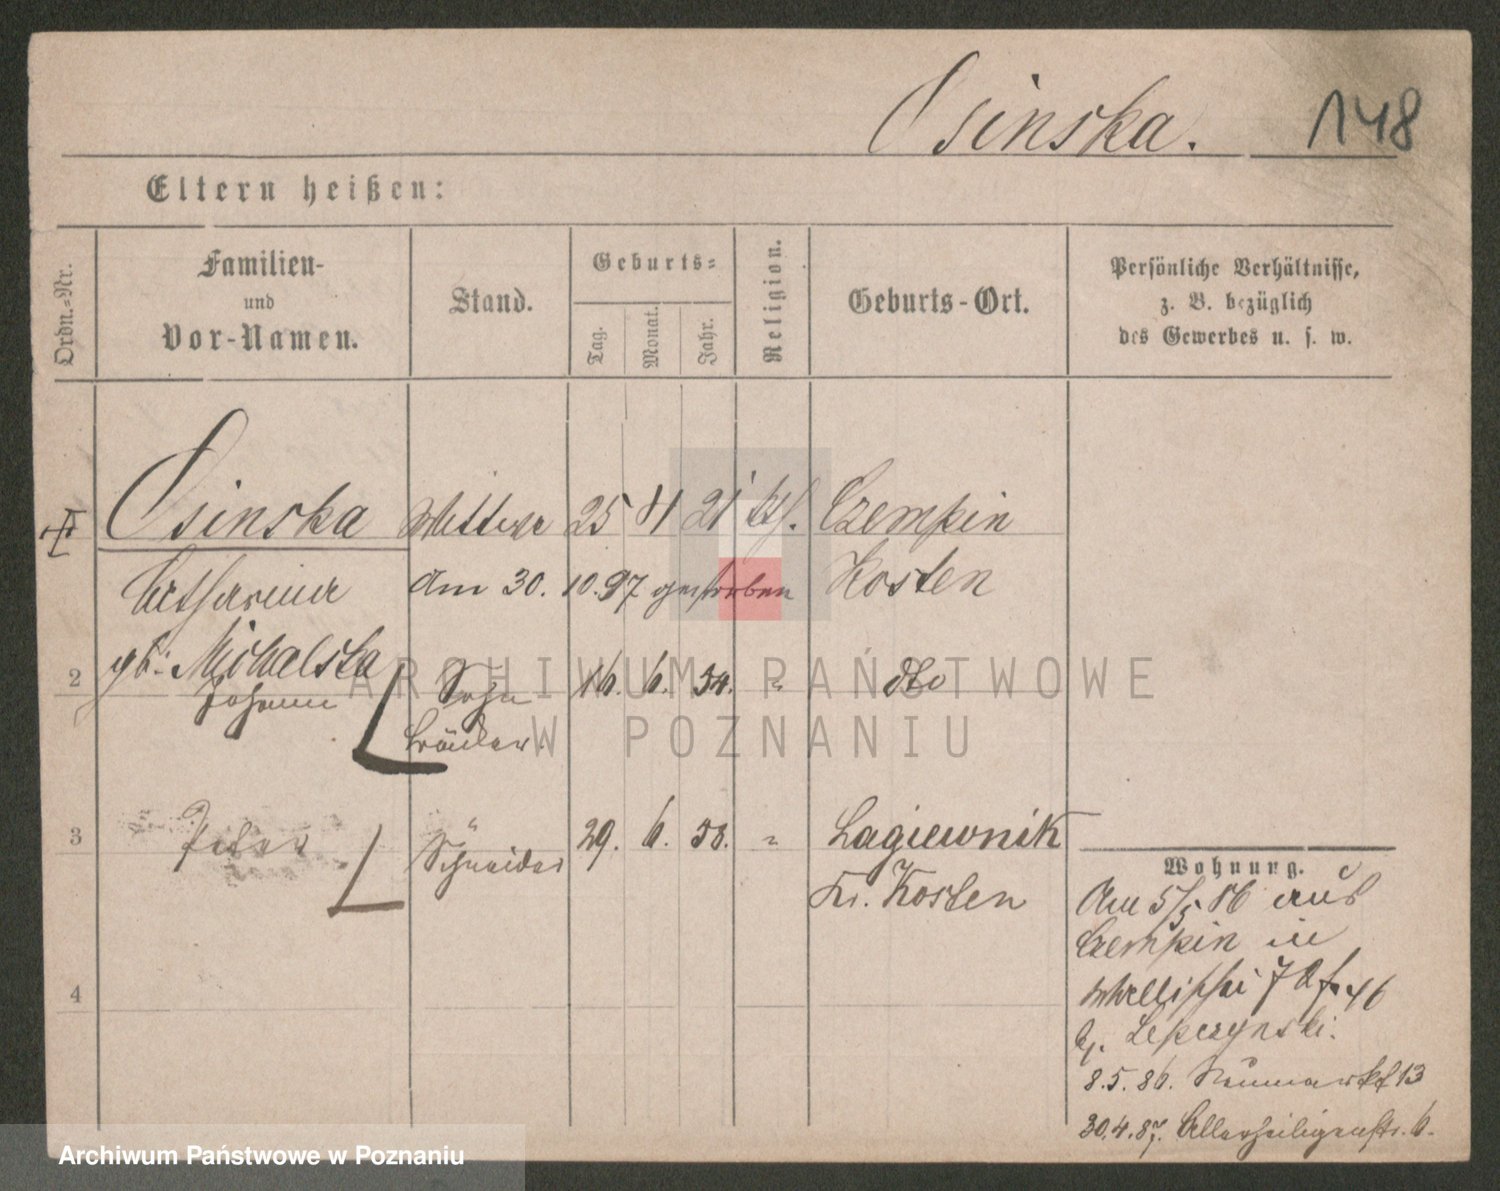 Osinska.
148
Eltern heißen:
Ordn.-Nr.
Familien-
und
Vor-Namen.
Stand.
Geburts-
Tag.
Monat.
Jahr.
Religion.
Geburts-Ort.
Persönliche Verhältnisse,
z. B. bezüglich
des Gewerbes u. s. w.
Osinska Wittwe 25 21 kth. Czempin
Catharina am 30. 10. 97 gestorben Kosten
gb. Michalska
2 Johann Sohn 16. 6. 54. " dto
3 Peter Schneider 29. 6. 58. " Lagiewnik
Kr. Kosten
4
Wohnung.
Am 5/5 86 aus
Czempin in
Wallischei 46
b. Lepczynski.
8.5.86. Neumarkt 13
30.4.87. Allerheiligenstr. 6.
ARCHIWUM PAŃSTWOWE
W POZNANIU
Archiwum Państwowe w Poznaniu